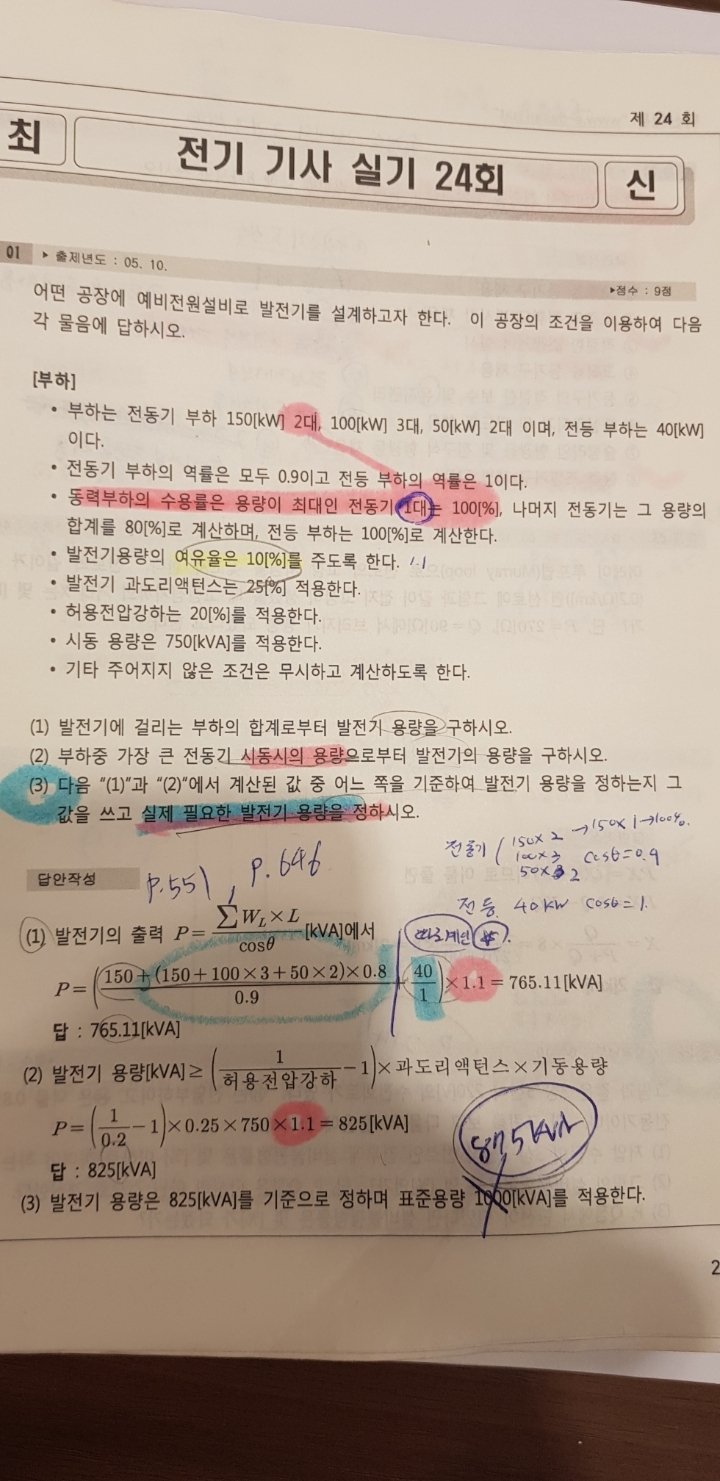 제 24 회
최 전기 기사 실기 24회 신
01 ▶ 출제년도 : 05. 10. ▶점수 : 9점
어떤 공장에 예비전원설비로 발전기를 설계하고자 한다. 이 공장의 조건을 이용하여 다음
각 물음에 답하시오.
[부하]
• 부하는 전동기 부하 150[kW] 2대, 100[kW] 3대, 50[kW] 2대 이며, 전등 부하는 40[kW]
이다.
• 전동기 부하의 역률은 모두 0.9이고 전등 부하의 역률은 1이다.
• 동력부하의 수용률은 용량이 최대인 전동기 1대는 100[%], 나머지 전동기는 그 용량의
합계를 80[%]로 계산하며, 전등 부하는 100[%]로 계산한다.
• 발전기용량의 여유율은 10[%]를 주도록 한다. 1.1
• 발전기 과도리액턴스는 25[%] 적용한다.
• 허용전압강하는 20[%]를 적용한다.
• 시동 용량은 750[kVA]를 적용한다.
• 기타 주어지지 않은 조건은 무시하고 계산하도록 한다.
(1) 발전기에 걸리는 부하의 합계로부터 발전기 용량을 구하시오.
(2) 부하중 가장 큰 전동기 시동시의 용량으로부터 발전기의 용량을 구하시오.
(3) 다음 "(1)"과 "(2)"에서 계산된 값 중 어느 쪽을 기준하여 발전기 용량을 정하는지 그
값을 쓰고 실제 필요한 발전기 용량을 정하시오.
전동기 ( 150×2 → 150×1 → 100%.
100×3 cosθ=0.9
50×2
전등 40kW cosθ=1.
답안작성 P.551, P.646
(1) 발전기의 출력 P = ∑W_L×L / cosθ [kVA]에서 따로계산
P = (150+(150+100×3+50×2)×0.8 / 0.9 + 40/1)×1.1 = 765.11[kVA]
답 : 765.11[kVA]
(2) 발전기 용량[kVA] ≥ (1/허용전압강하 −1)×과도리액턴스×기동용량
P = (1/0.2 −1)×0.25×750×1.1 = 825[kVA]
875kVA
답 : 825[kVA]
(3) 발전기 용량은 825[kVA]를 기준으로 정하며 표준용량 1000[kVA]를 적용한다.
2